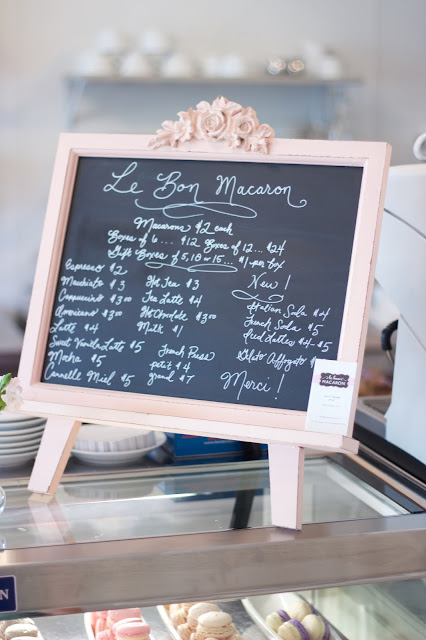 Le Bon Macaron
Macarons $2 each
Boxes of 6... $12 Boxes of 12... $24
Gift Boxes of 5, 10 or 15... $1 per box
Espresso $2
Macchiato $3
Cappuccino $3.00
Americano $3.00
Latte $4
Sweet Vanilla Latte $5
Mocha $5
Cannelle Miel $5
Hot Tea $3
Tea Latte $4
Hot Chocolate $3.00
Milk $1
French Press
petit $4
grand $7
New!
Italian Soda $4
French Soda $5
Iced Lattes $4-$5
Gelato Affogato
Merci!
MACARON
N